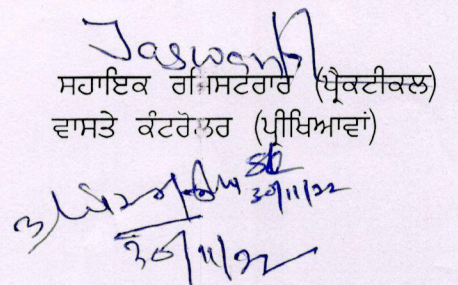 Jaswant
ਸਹਾਇਕ ਰਜਿਸਟਰਾਰ (ਪ੍ਰੈਕਟੀਕਲ)
ਵਾਸਤੇ ਕੰਟਰੋਲਰ (ਪ੍ਰੀਖਿਆਵਾਂ)
30/11/22
30/11/22